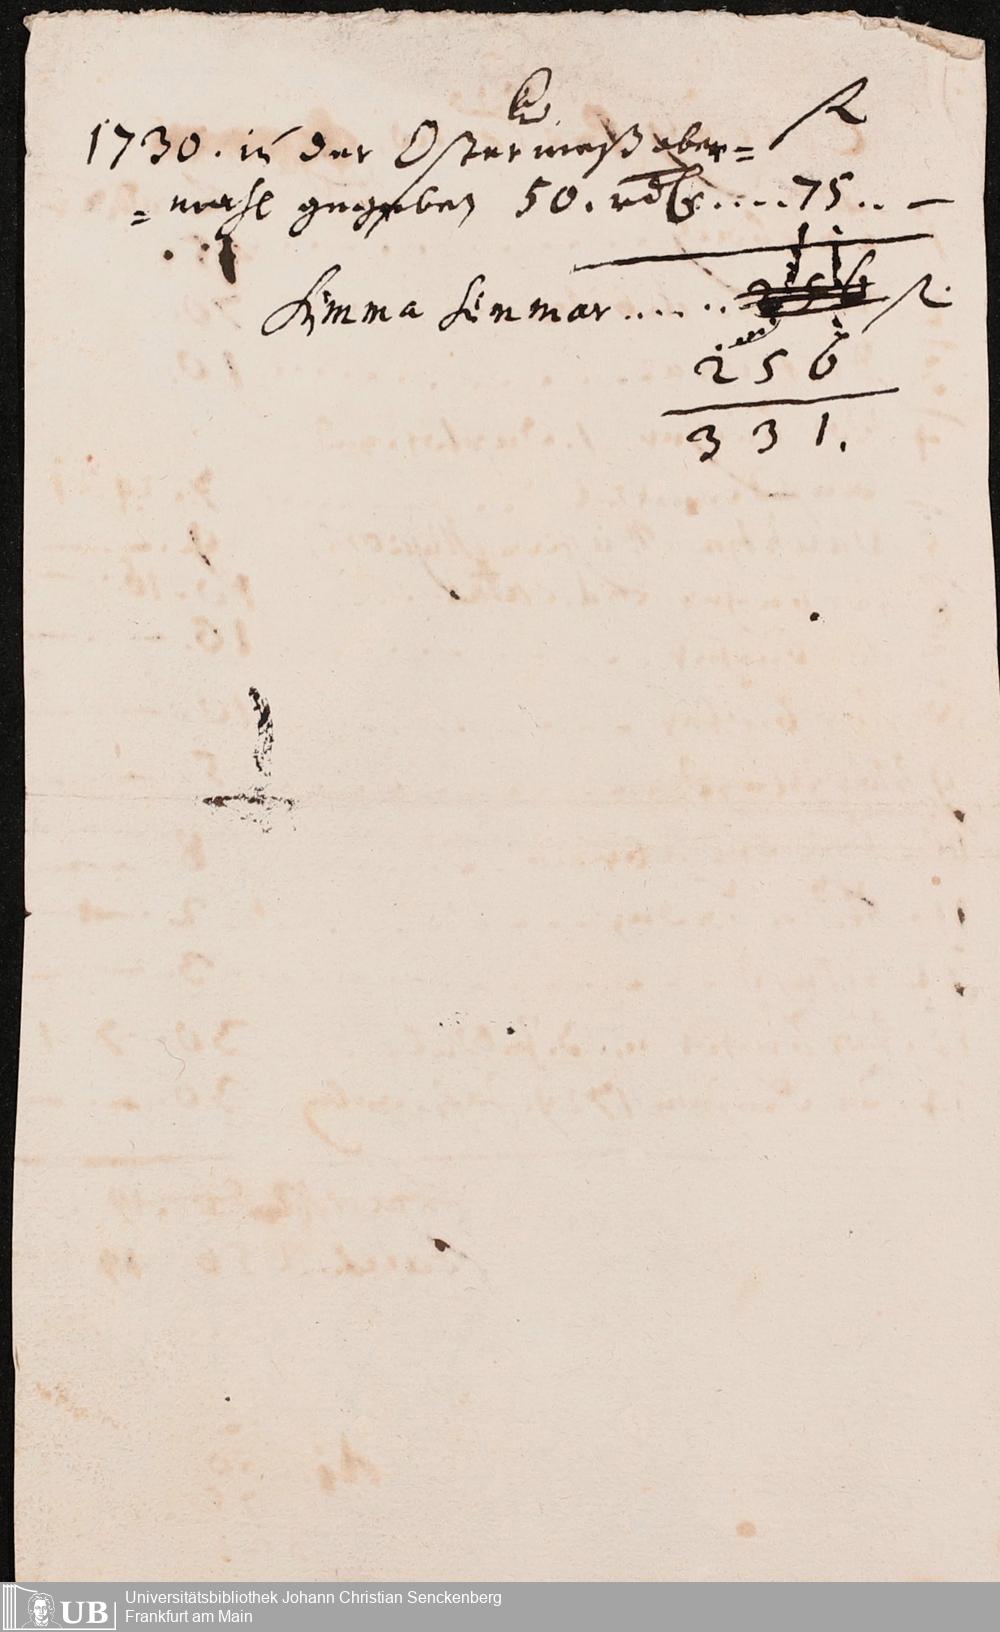 fl
1730. in der Ostermeß aber=
=mahl gegeben 50. rdlr....75..—
Summa Summar...... 256 fl.
256
331.
Universitätsbibliothek Johann Christian Senckenberg
Frankfurt am Main
UB